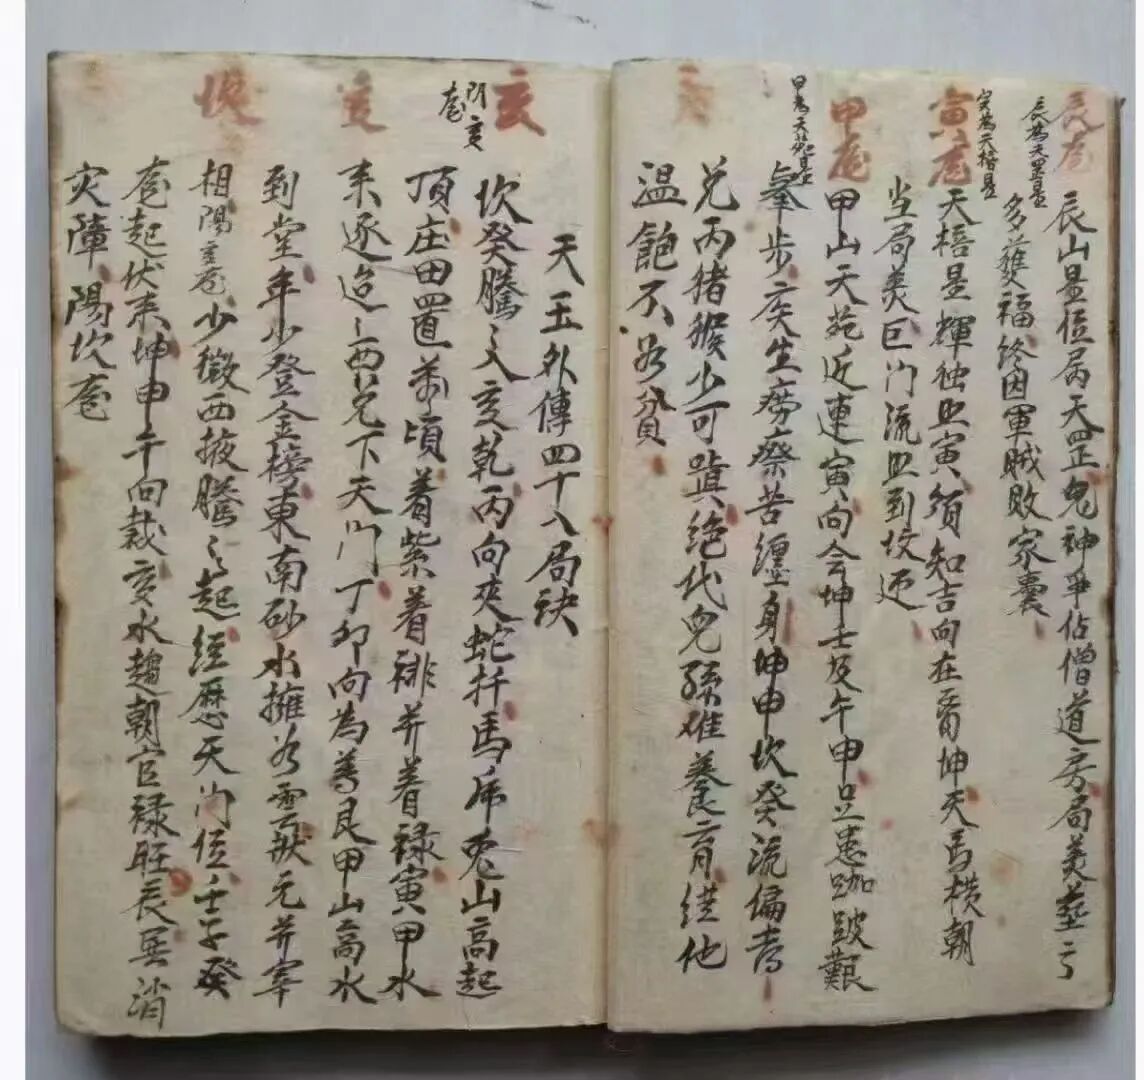 辰龙
辰為天罡星
辰山星位居天罡鬼神爭佔僧道房局美塟亏
多獲福終因軍賊败家囊
寅龙
寅為天棓星
天棓星輝独照寅須知吉向在酉坤天馬横朝
当局美巨门流照到坟迊
甲龙
甲為天苑星
甲山天苑近連寅向会坤壬及午申只患跏跛艱
舉步疾生痨瘵苦纒身坤申坎癸流偏考
兌丙猪猴少可蹎绝代兒孫难養育継他
温飽不为貧
亥
阴亥龙
天玉外傳四十八局訣
坎癸騰之入亥乾丙向夾蛇扦馬帋兎山高起
頂庄田置萬頃着紫着緋并着禄寅甲水
来逐迢之酉兌下天门丁卯向為尊艮甲山高水
到堂年少登金榜東南砂水擁为雲狀元并宰
相陽主龙少微西掖騰之起經歷天门位壬子癸
龙起伏来坤申午向裁亥水趨朝官禄旺辰巽消
灾障陽坎龙
坎